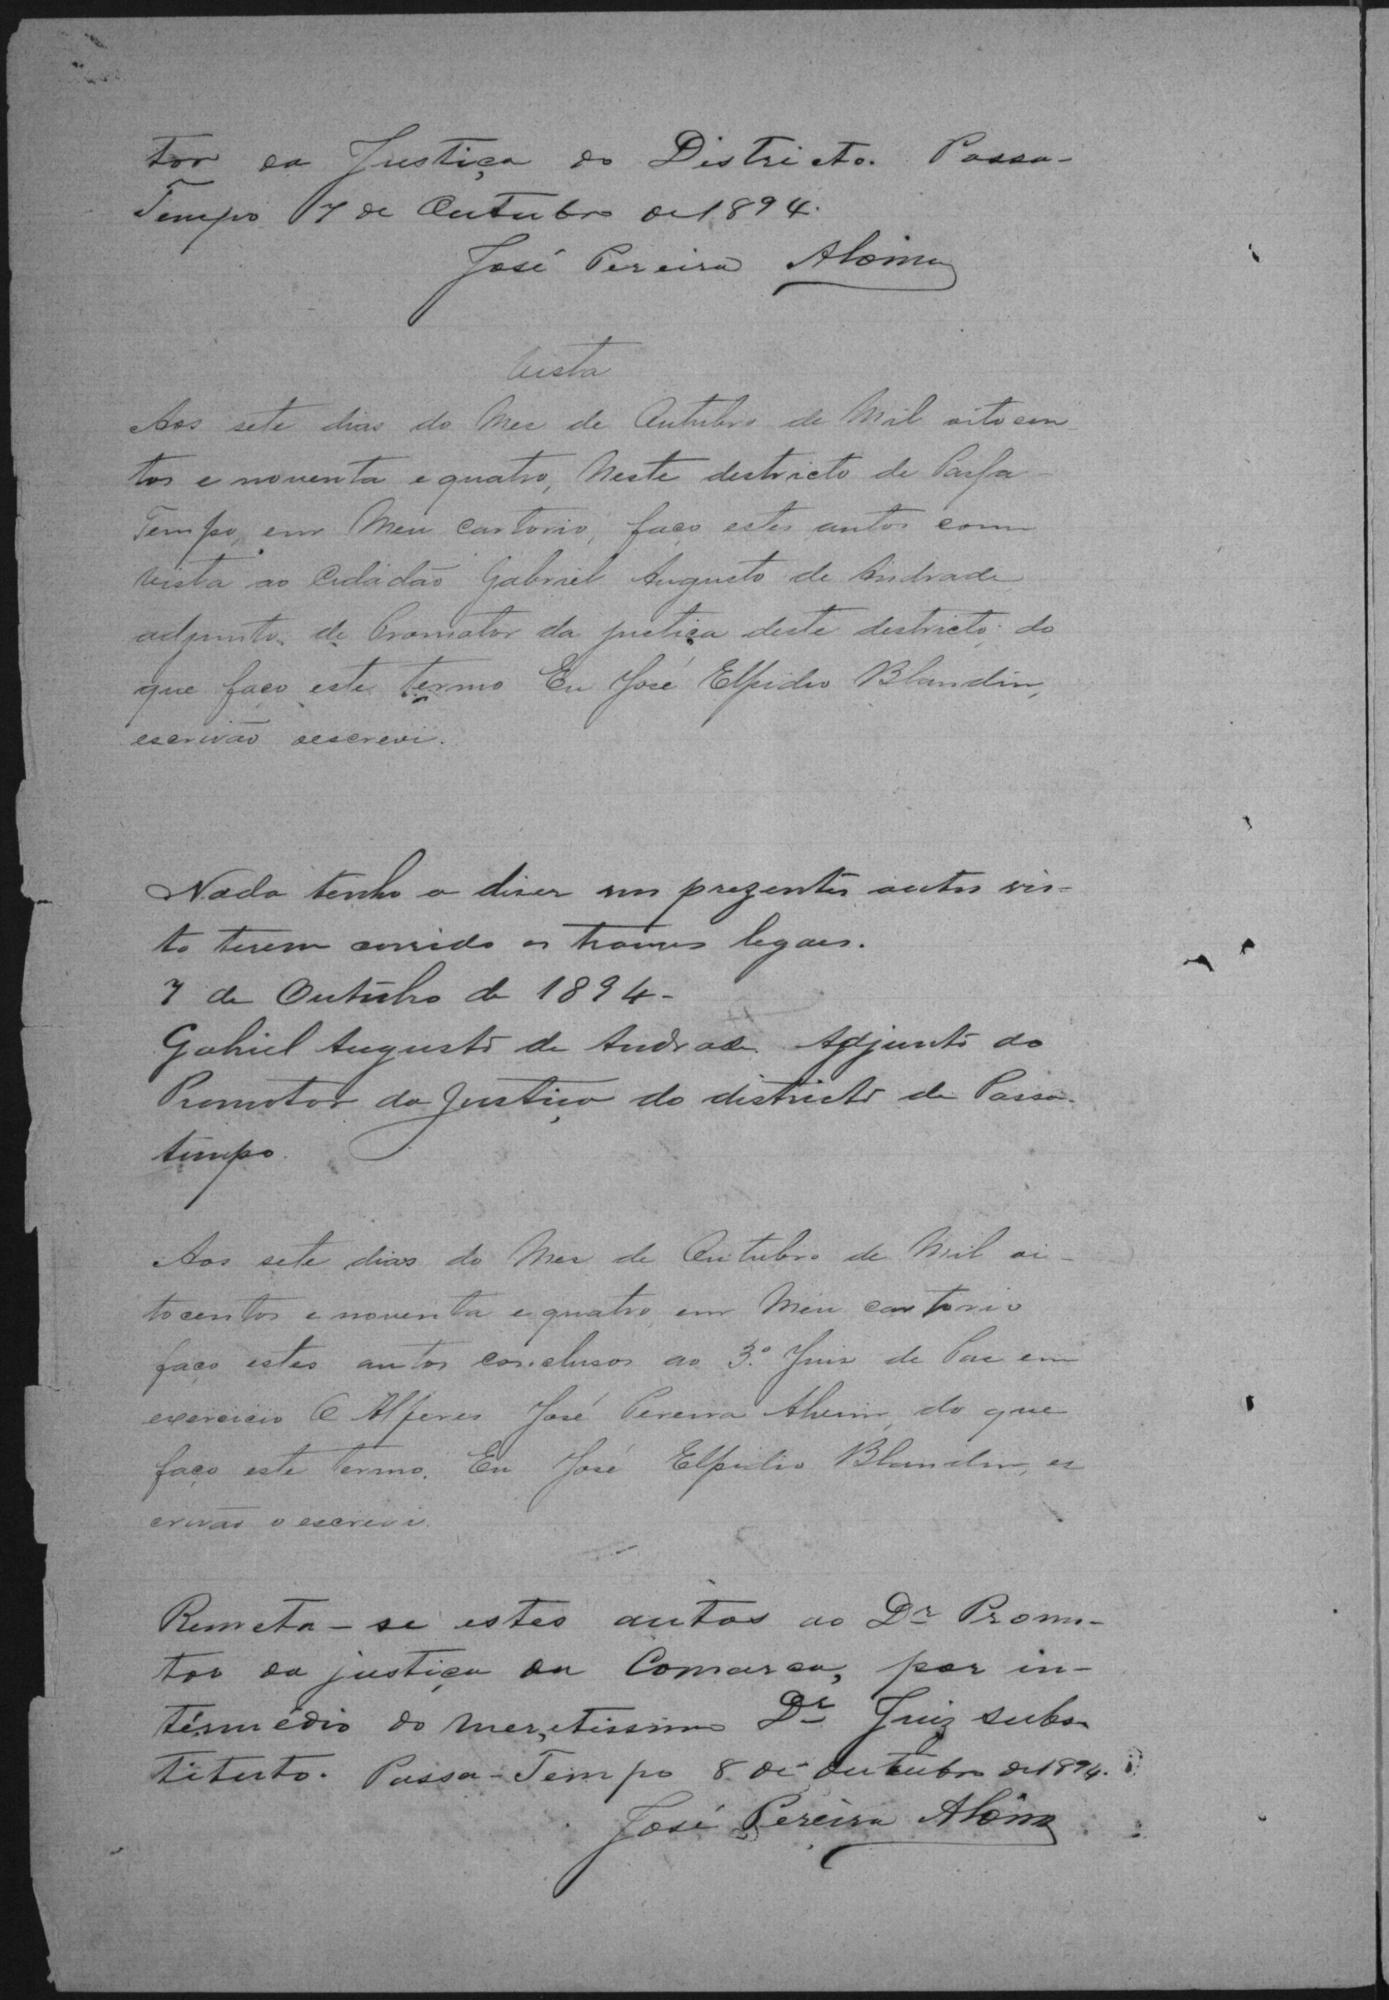 tor da Justiça do Districto. Passa-
Tempo 7 de Outubro de 1894.
José Pereira
Vista
Aos sete dias do Mez de Outubro de Mil oitocen
tos e noventa e quatro, Neste destricto de Passa-
Tempo, em Meu cartorio, faço estes autos com
vista ao Cidadão Gabriel Augusto de Andrade
adjunto de Promotor da justiça deste destricto; do
que faço este termo Eu José Elpidio Blandin,
escrivão oescrevi.
Nada tenho a diser nos prezentes autos vis-
to terem corrido os tramis legaes.
7 de Outubro de 1894-
Gabriel Augusto de Andrade Adjunto do
Promotor da Justiça do districto de Passa-
tempo.
Aos sete dias do Mez de Outubro de Mil oi-
tocentos e noventa e quatro, em Meu cartorio
faço estes autos conclusos ao 3.º Juiz de Paz em
exercicio O Alferes José Pereira do que
faço este termo. Eu José Elpidio Blandin, es
crivão o escrevi.
Remeta-se estes autos ao Dr Promo-
tor da justiça da Comarca, por in-
termédio do meretissimo Dr Juiz subs-
tituto. Passa-Tempo 8 de Outubro de 1894.
José Pereira